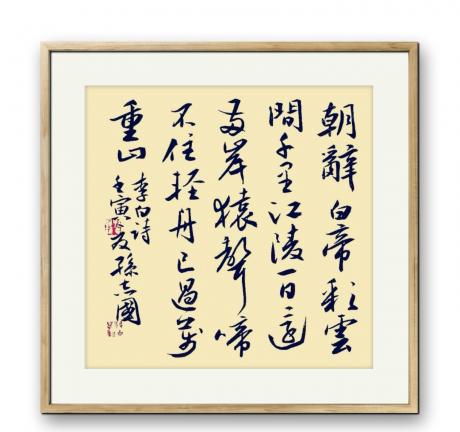 朝辭白帝彩雲
間千里江陵一日還
兩岸猿聲啼
不住輕舟已過萬
重山
李白詩
壬寅孫志國